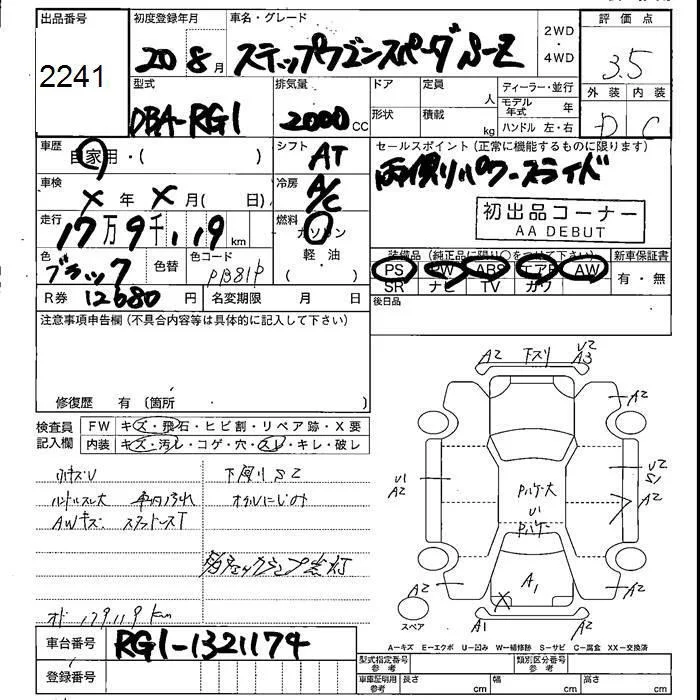 出品番号 初度登録年月 車名・グレード 2WD・4WD 評価点
2241 20年 8月 ステップワゴンスパーダ S-Z 3.5
外装 内装
D C
型式 排気量 ドア 定員 人 ディーラー・並行
DBA-RG1 2000cc 形状 積載 kg モデル年式 年
ハンドル 左・右
車歴 自家用・( ) シフト AT セールスポイント (正常に機能するものに限ります)
両側パワースライド
車検 X年 X月( 日) 冷房 A/C
初出品コーナー
AA DEBUT
走行 17万9千119km 燃料 ガソリン
軽・油
( )
色 ブラック 色替 色コード
装備品 (純正品に限り○をつけて下さい) 新車保証書
PS PW ABS エアB AW 有・無
SR ナビ TV カワ
R券 12680円 名変期限 月 日 後日品
注意事項申告欄 (不具合内容等は具体的に記入して下さい)
修復歴 有 (箇所 )
検査員記入欄 FW キズ・飛石・ヒビ割・リペア跡・X要
内装 キズ・汚し・コゲ・穴・スレ・キレ・破レ
下廻りSZ
ハンドルスレ大 車内汚れ オイルにじみ
AWキズ
オド 179119km
車台番号 RG1-1321174
登録番号
A2 下スリ U2 A3
A2 A2
U1 A2 Pハゲ大 U1 Pハゲ U2 S1
A2
A2 A1 A2
X
スペア A1 A2
A-キズ E-エクボ U-凹み W-補修跡 S-サビ C-腐食 XX-交換済
型式指定番号 参考 類別区分番号 参考
車庫証明用 参考 長さ cm 幅 cm 高さ cm